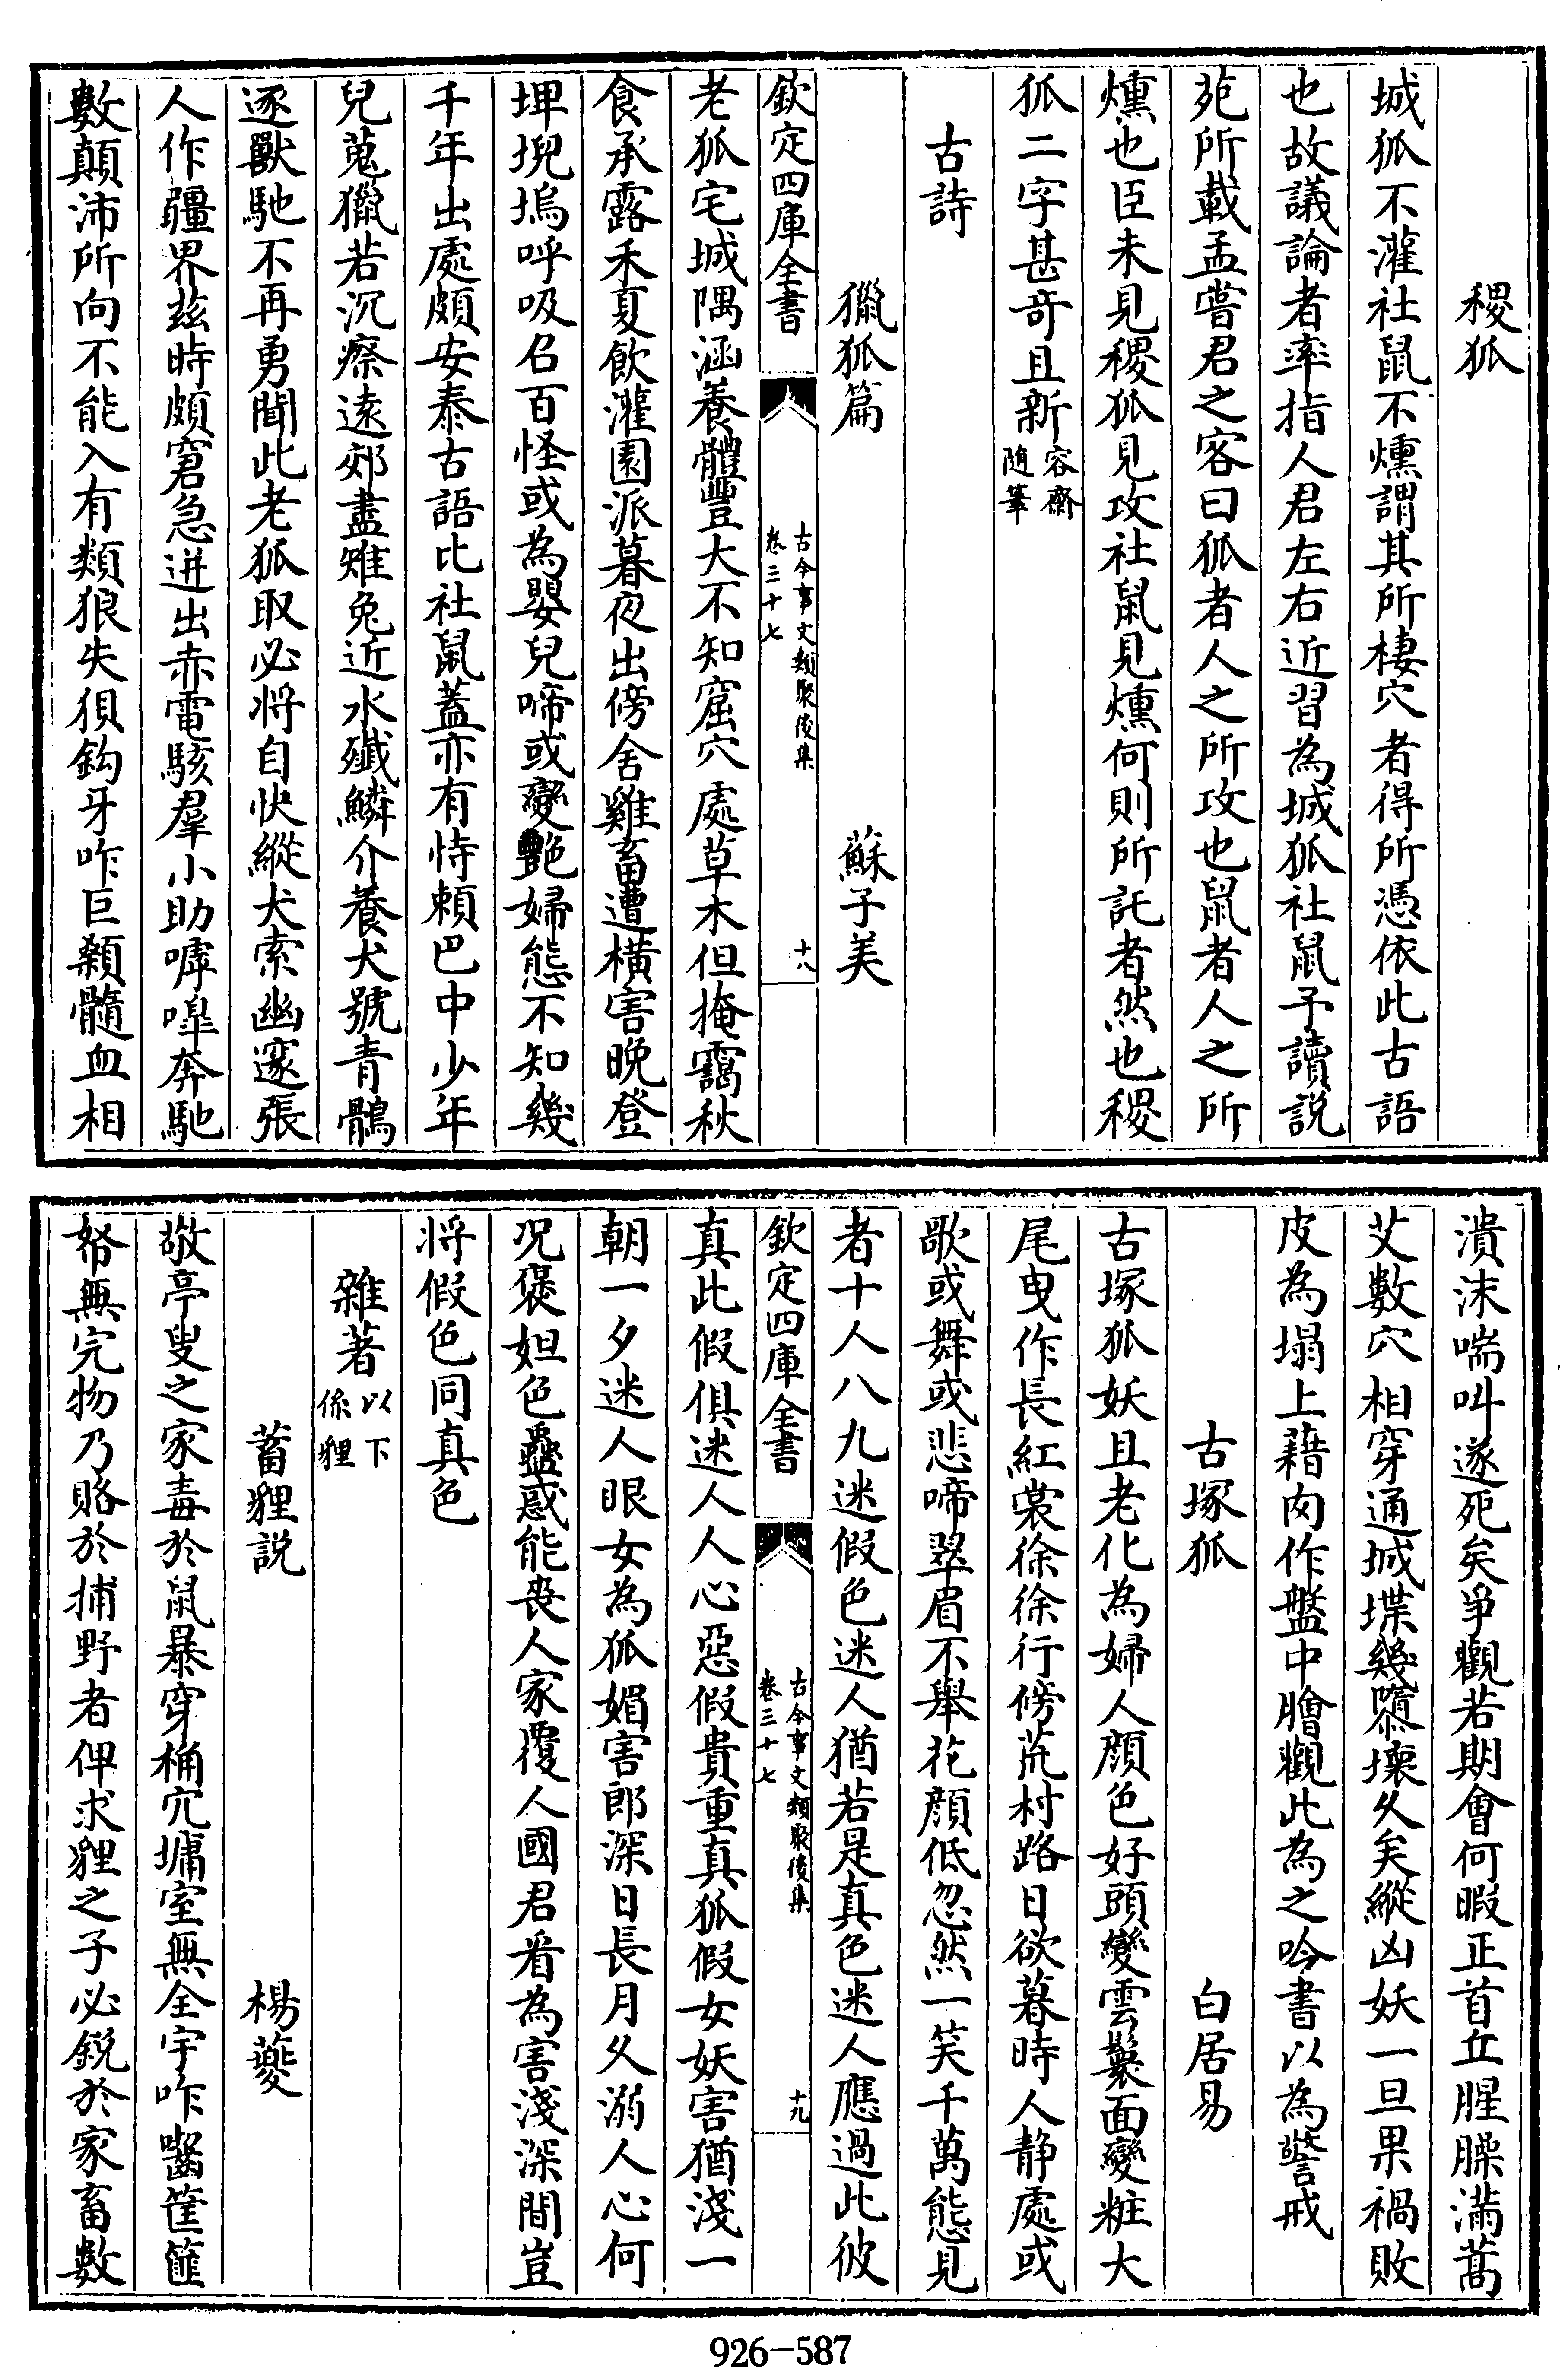 稷狐
城狐不灌社鼠不燻謂其所棲穴者得所憑依此古語
也故議論者率指人君左右近習為城狐社鼠予讀說
苑所載孟嘗君之客曰狐者人之所攻也鼠者人之所
燻也臣未見稷狐見攻社鼠見燻何則所託者然也稷
狐二字甚奇且新容齋
隨筆
古詩
獵狐篇 蘇子美
欽定四庫全書 古今事文類聚後集
卷三十七 十八
老狐宅城隅涵養體豐大不知窟穴處草木但掩靄秋
食承露禾夏飲灌園派暮夜出傍舍雞畜遭橫害晚登
埤堄塢呼吸召百怪或為嬰兒啼或變艷婦態不知幾
千年出處頗安泰古語比社鼠蓋亦有恃賴巴中少年
兒蒐獵若沉瘵遠郊盡雉兔近水殲鱗介養犬號青鶻
逐獸馳不再勇聞此老狐取必將自快縱犬索幽邃張
人作疆界茲時頗窘急迸出赤電駭羣小助嘑嘷奔馳
數顛沛所向不能入有類狼失狽鈎牙咋巨顙髓血相
潰沫喘叫遂死矣爭觀若期會何暇正首丘腥臊滿蒿
艾數穴相穿通城堞幾隳壞久矣縱凶妖一旦果禍敗
皮為塌上藉肉作盤中膾觀此為之吟書以為警戒
古塚狐 白居易
古塚狐妖且老化為婦人顏色好頭變雲鬟面變粧大
尾曳作長紅裳徐徐行傍荒村路日欲暮時人静處或
歌或舞或悲啼翠眉不舉花顏低忽然一笑千萬態見
者十人八九迷假色迷人猶若是真色迷人應過此彼
欽定四庫全書 古今事文類聚後集
卷三十七 十九
真此假俱迷人人心惡假貴重真狐假女妖害猶淺一
朝一夕迷人眼女為狐媚害郎深日長月久溺人心何
况褒妲色蠱惑能喪人家覆人國君看為害淺深間豈
將假色同真色
雜著以下
係貍
蓄貍說 楊夔
敬亭叟之家毒於鼠暴穿桷穴墉室無全宇咋嚙筐篚
帑無完物乃賂於捕野者俾求貍之子必銳於家畜數
926-587